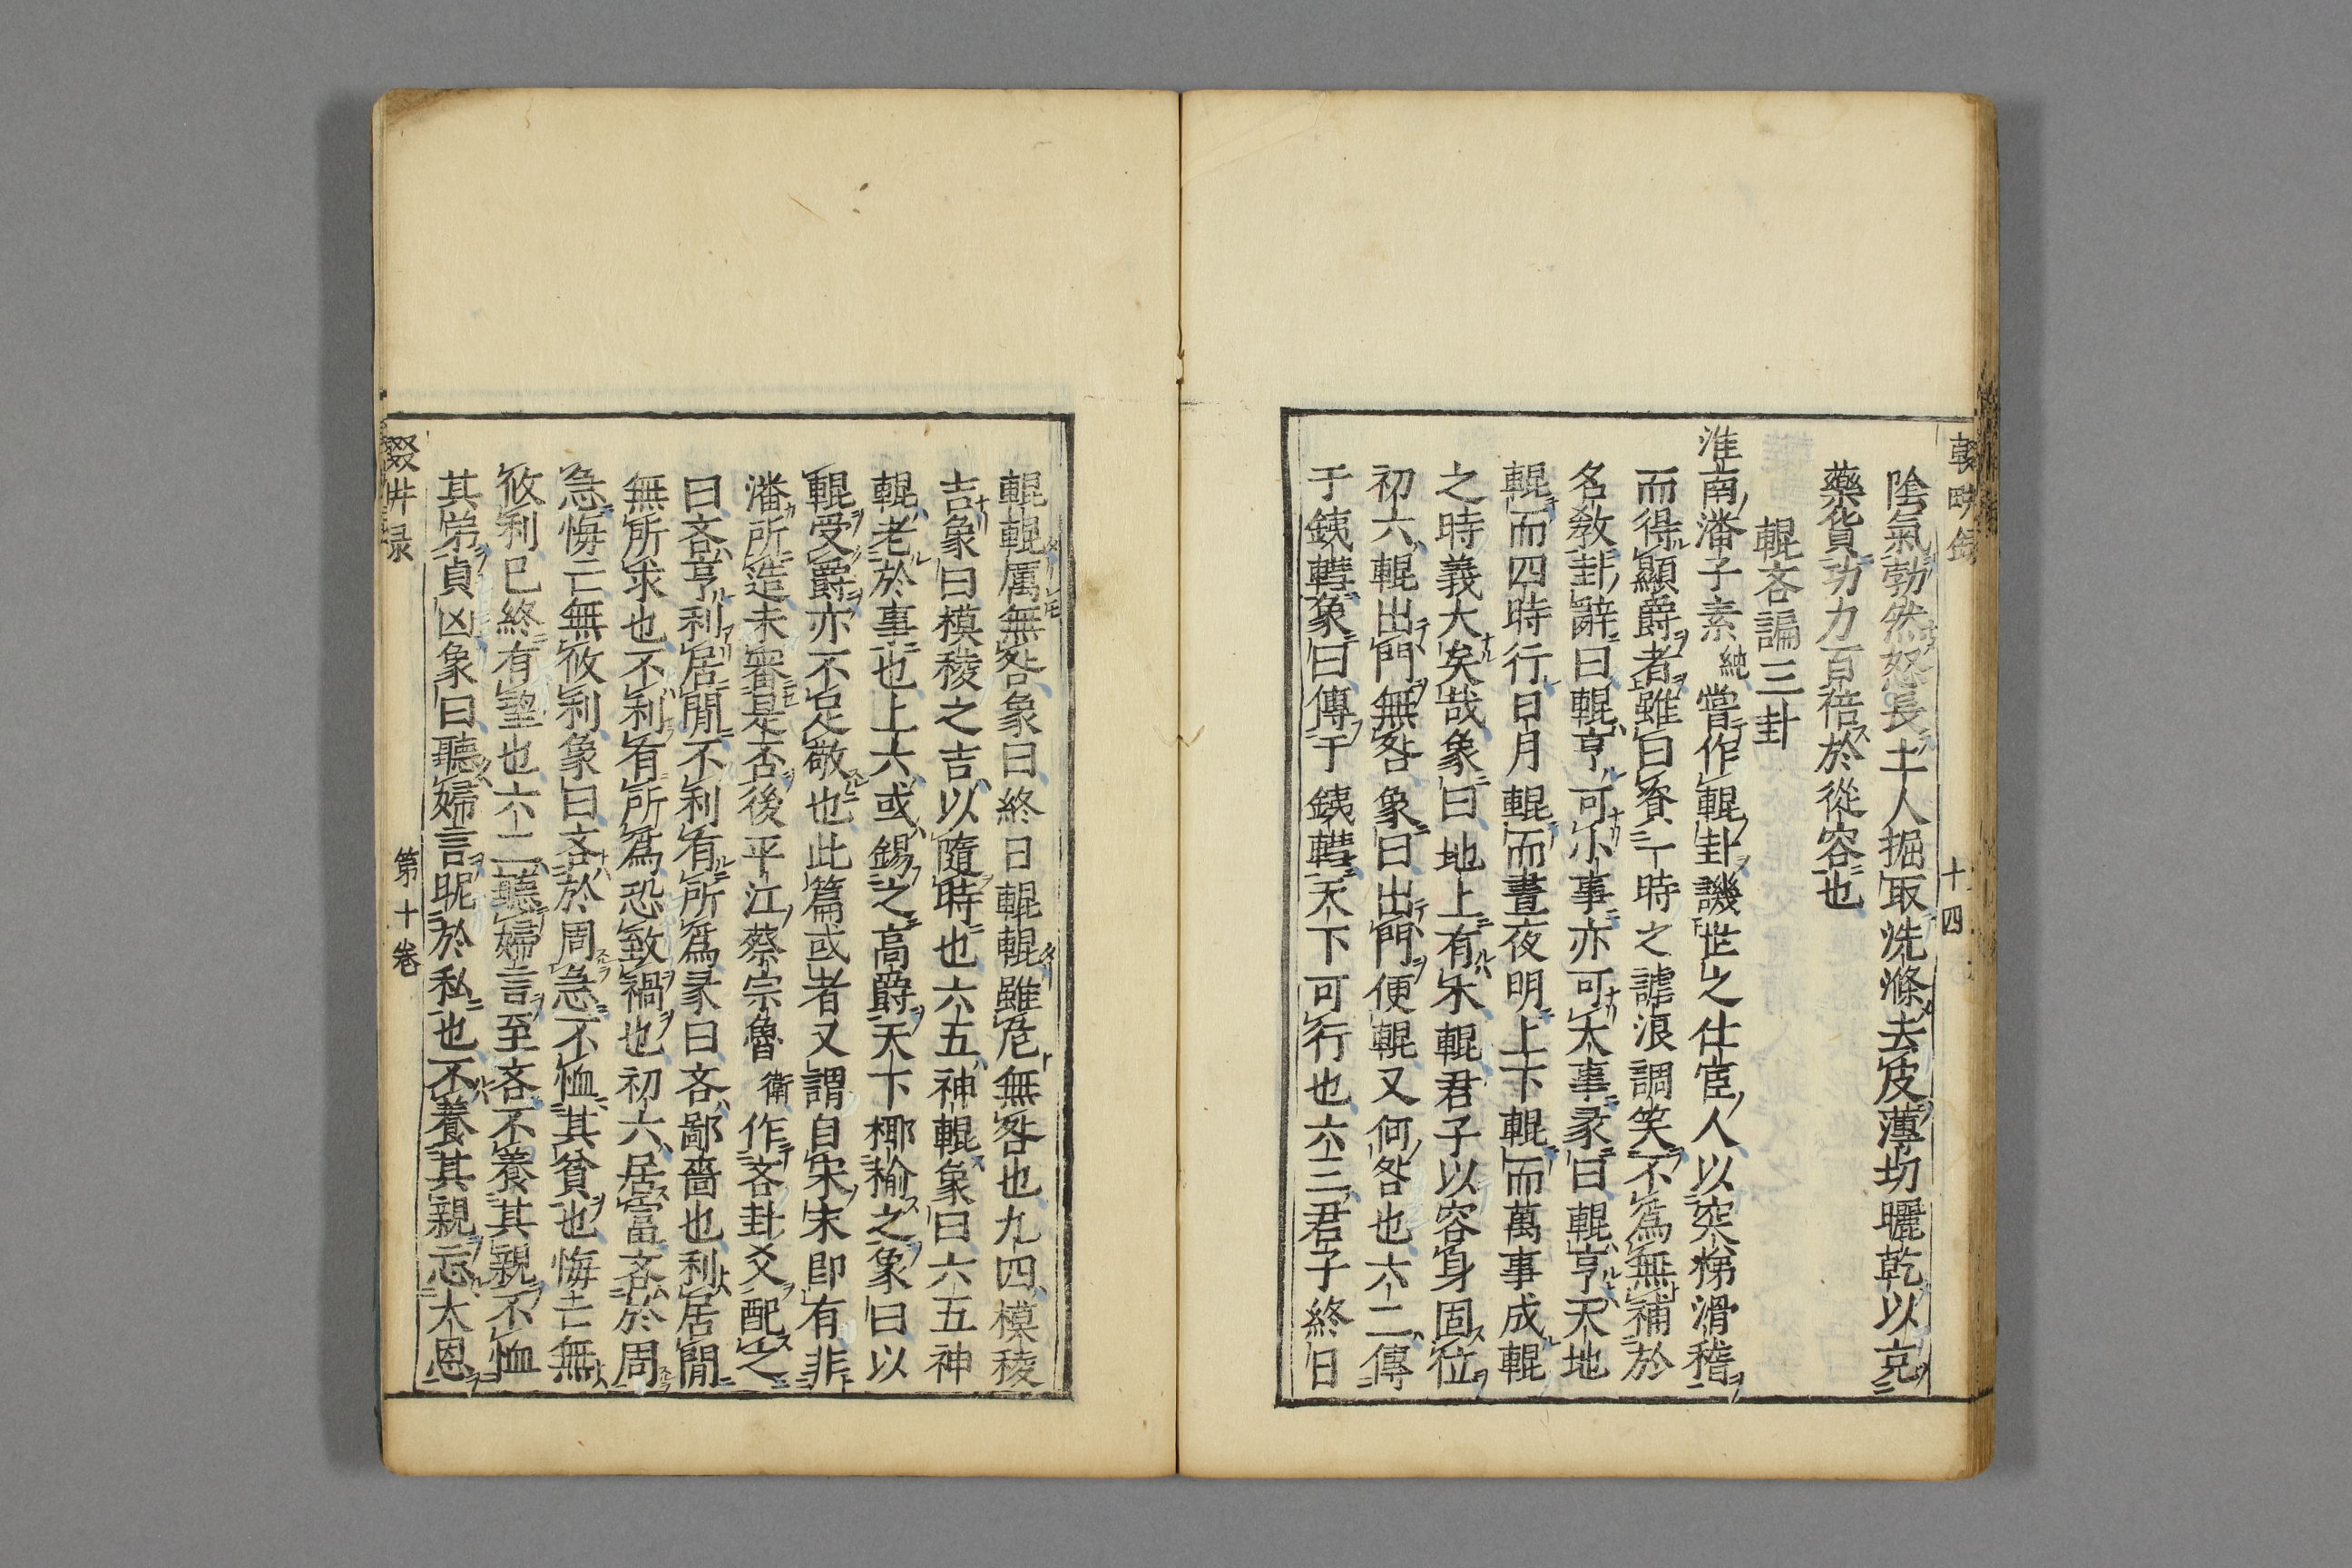 輟畊録
十四
陰氣勃然怒長土人掘取洗滌去皮薄切曬乾以充
藥貨功力百倍於從容也
輥吝諞三卦
淮南潘子素純嘗作輥卦譏世之仕宦人以突梯滑稽
而得顯爵者雖曰資一時之謔浪調笑不爲無補於
名敎卦辭曰輥亨可小事亦可大事彖曰輥亨天地
輥而四時行日月輥而晝夜明上下輥而萬事成輥
之時義大矣哉象曰地上有木輥君子以容身固位
初六輥出門無咎象曰出門便輥又何咎也六二傳
于銕轊象曰傳于銕轊天下可行也六三君子終日
輥輥厲無咎象曰終日輥輥雖危無咎也九四模稜
吉象曰模稜之吉以隨時也六五神輥象曰六五神
輥老於事也上六或錫之高爵天下揶揄之象曰以
輥受爵亦不足敬也此篇或者又謂自宋末即有非
潘所造未審是否後平江蔡宗魯衛作吝卦爻配之
曰吝亨利居閒不利有所爲彖曰吝鄙嗇也利居閒
無所求也不利有所爲恐致禍也初六居富吝於周
急悔亡無攸利象曰吝於周急不恤其貧也悔亡無
攸利已終有望也六二聽婦言至吝不養其親不恤
其弟貞凶象曰聽婦言昵於私也不養其親忘大恩
輟畊录
第十巻